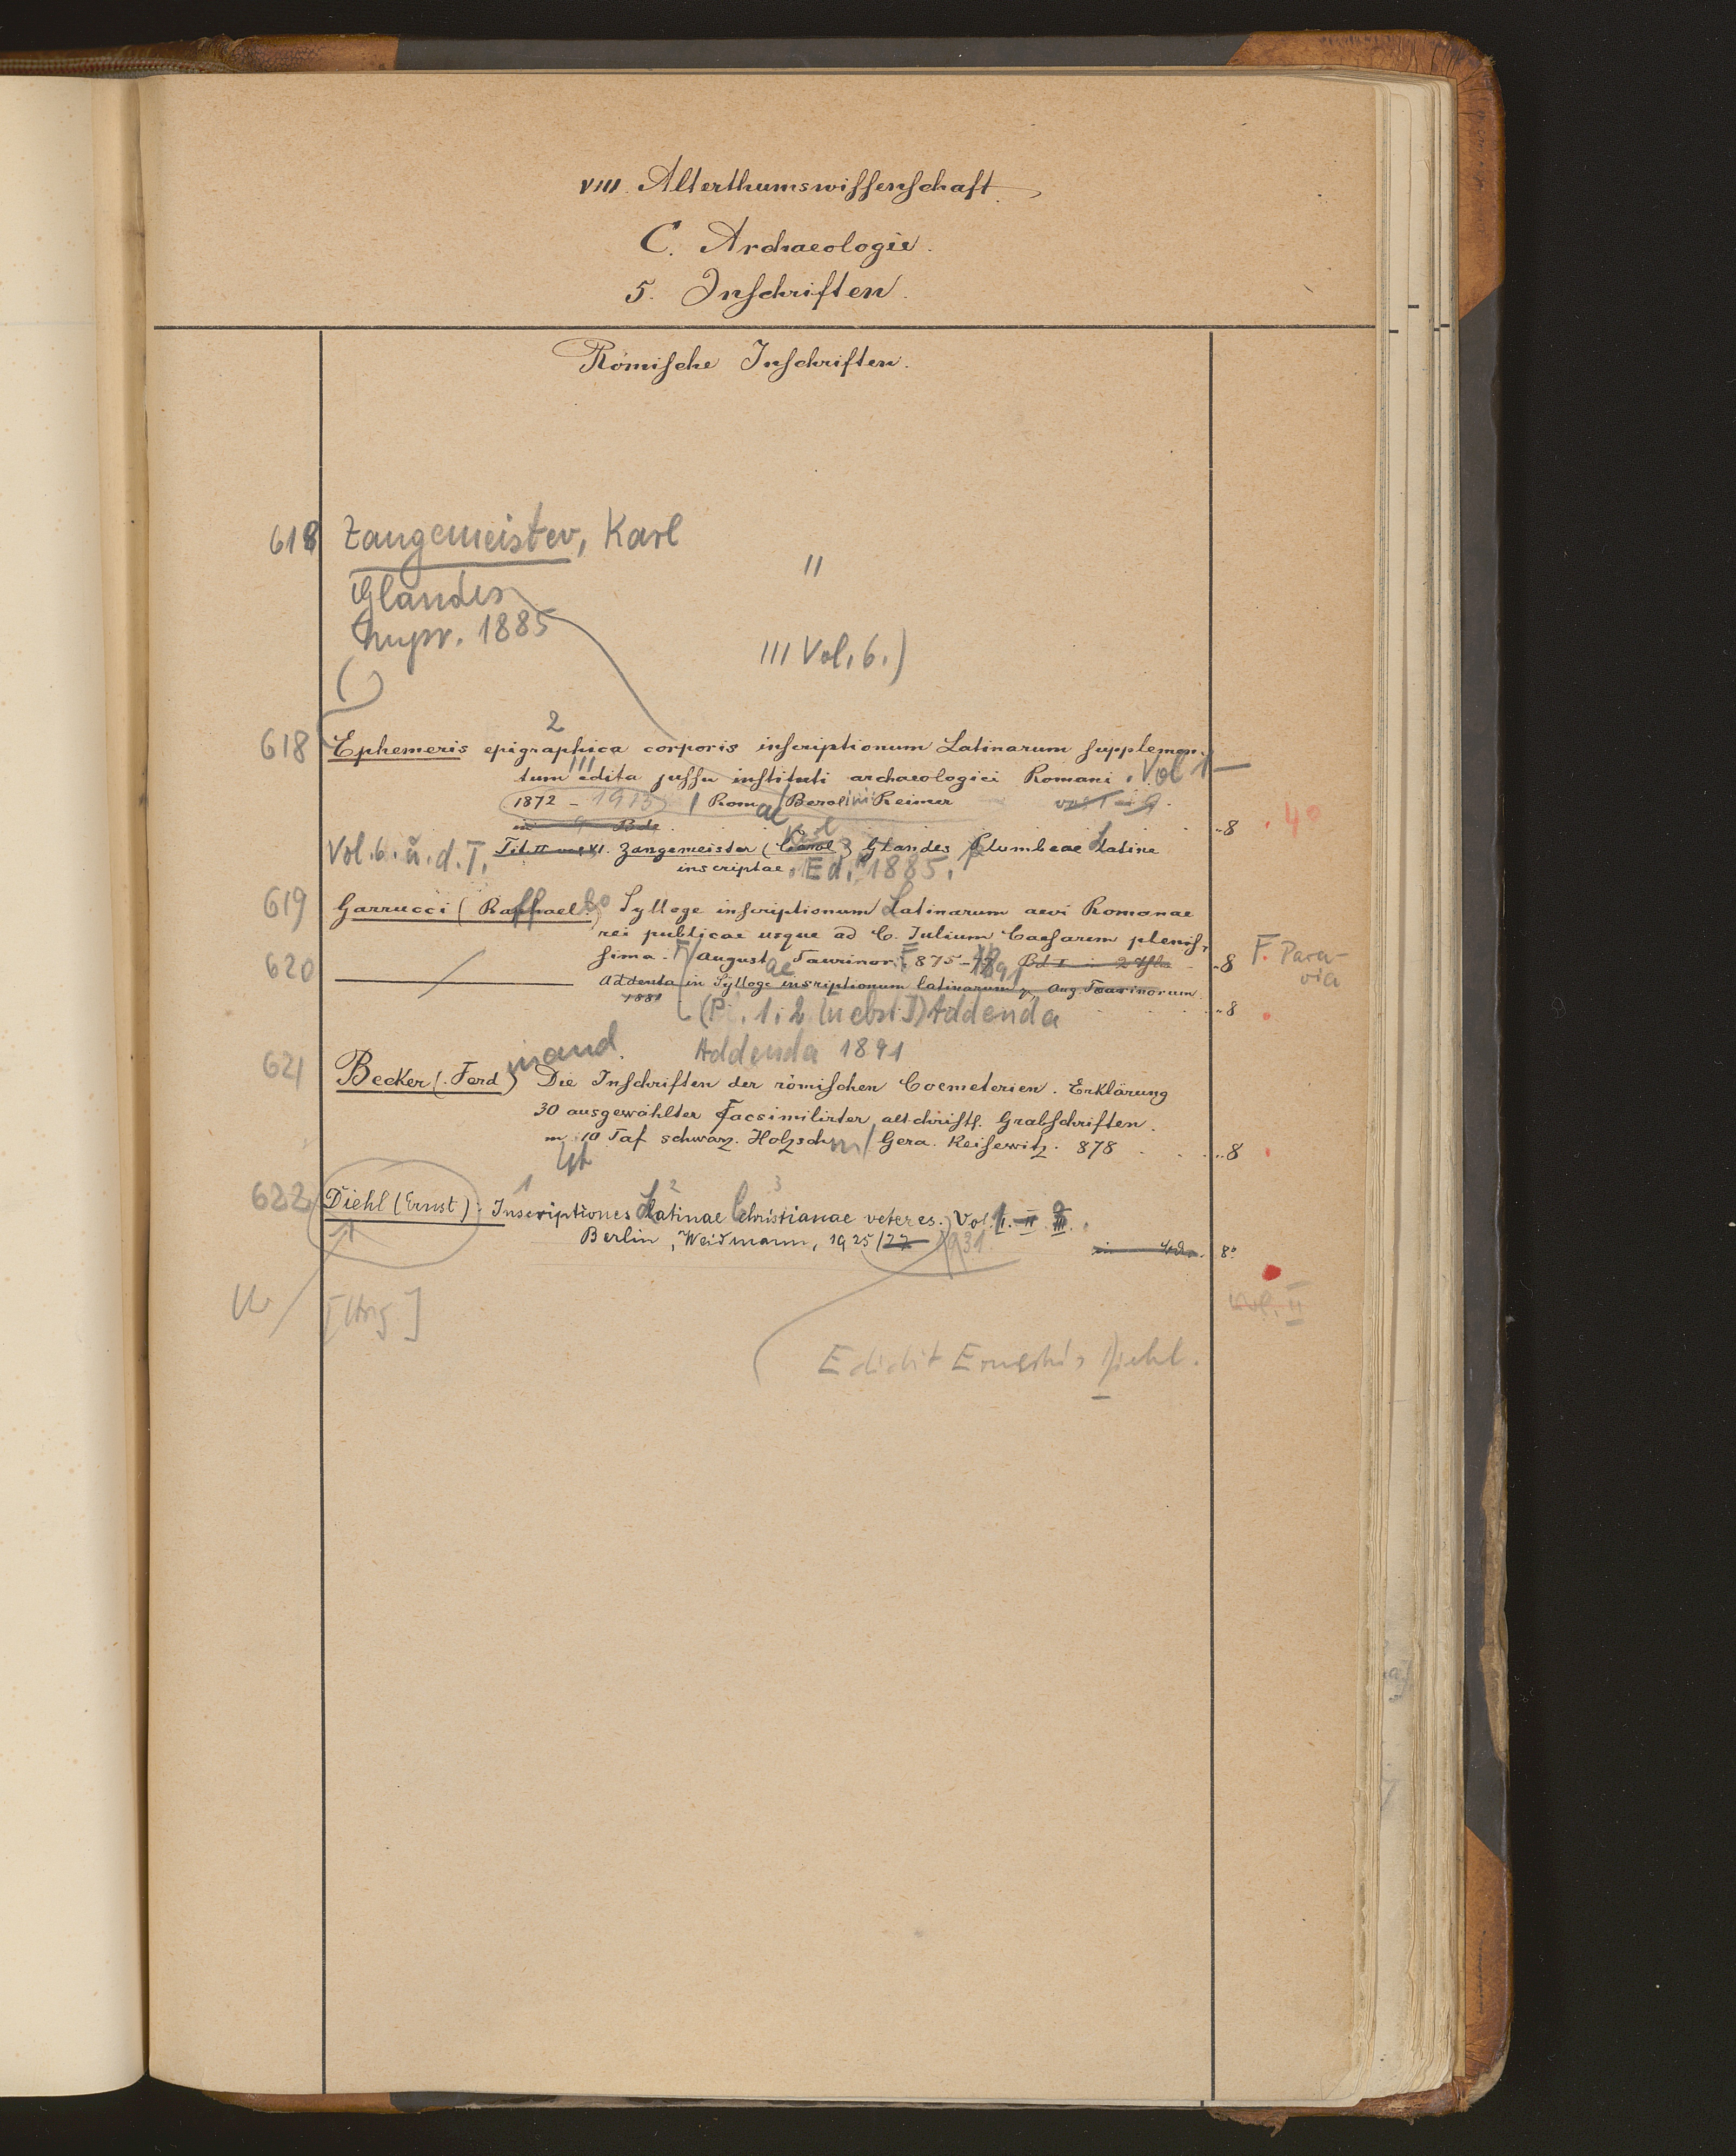 VIII. Alterthumswissenschaft.
C. Archaeologie.
5. Inschriften.
Römische Inschriften.
618 Zangemeister, Karl
II
Glandes
1885
III Vol. 6.)
2
618 Ephemeris epigraphica corporis inscriptionum Latinarum supplemen-
III
tum edita jussu instituti archaeologici Romani. Vol 1—
(1872 - 1913) / Romae / Berolini Reimer
in 9 Bde ..8 . 4°
Vol. 6. u. d. T. Zangemeister (Carol) Karl Glandes plumbeae Latine
inscriptae. Ed. 1885.
619 Garrucci (Raffaelo) Sylloge inscriptionum Latinarum aevi Romanae
rei publicae usque ad C. Iulium Caesarem plenis-
sima. F / Augustae Taurinor. F 875-77 1891 Bd I in 2 ..8 F. Para-
via
620 — Addenta in Sylloge inscriptionum latinarum Aug. Taurinorum
1881 ..8
1. 2 (nebst) Addenda
Addenda 1891
621 Becker (Ferdinand) Die Inschriften der römischen Coemeterien. Erklärung
30 ausgewählter Facsimilirter altchristl. Grabschriften.
m 10 Taf schwarz. Holzschn / Gera. Reisewitz. 878 ..8
1 2 3
622 Diehl (Ernst): Inscriptiones Latinae Christianae veteres. Vol. I. II III.
Berlin, Weidmann, 1925/27 1931. in 8°
Vol. II
[Hrsg]
Edidit Ernestus Diehl.